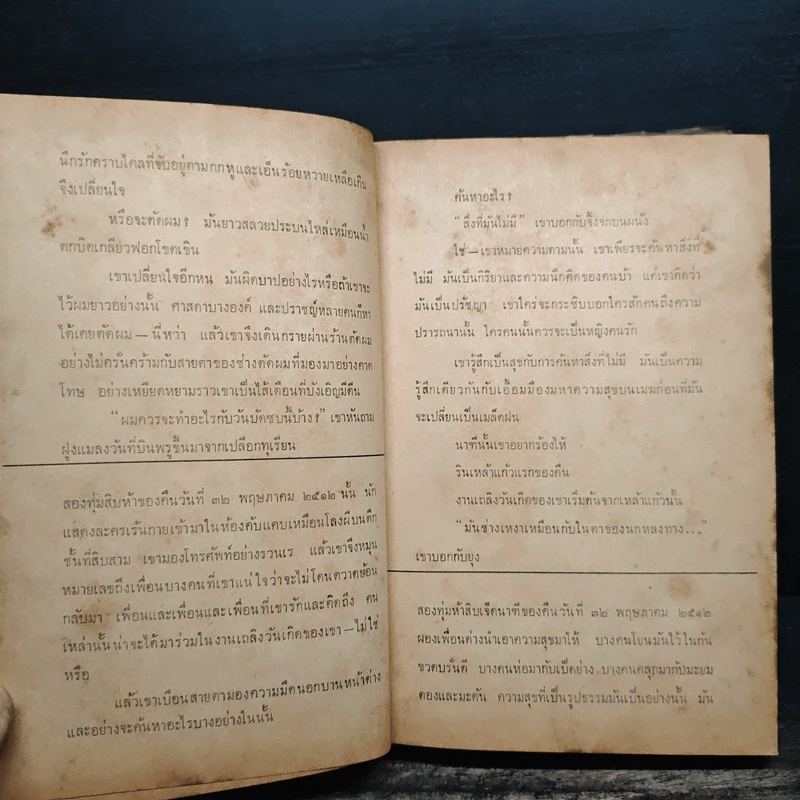 นึกรักคราบไคลที่จับอยู่ตามกกหูและเอ็นร้อยหวายเหลือเกิน
จึงเปลี่ยนใจ
หรือจะตัดผม? มันยาวสลวยประบนไหล่เหมือนน้ำ
ตกบิดเกลียวฟอกโขดเขิน
เขาเปลี่ยนใจอีกหน มันผิดบาปอย่างไรหรือถ้าเขาจะ
ไว้ผมยาวอย่างนั้น ศาสดาบางองค์ และปราชญ์หลายคนก็หา
ได้เคยตัดผม — นี่หว่า แล้วเขาจึงเดินกรายผ่านร้านตัดผม
อย่างไม่ครั่นคร้ามกับสายตาของช่างตัดผมที่มองมาอย่างคาด
โทษ อย่างเหยียดหยามราวเขาเป็นไส้เดือนที่บังเอิญมีตีน
“ผมควรจะทำอะไรกับวันบัดซบนี้บ้าง?” เขาหันถาม
ฝูงแมลงวันที่บินพรูขึ้นมาจากเปลือกทุเรียน
สองทุ่มสิบห้าของคืนวันที่ ๓๒ พฤษภาคม ๒๕๑๒ นั้น นัก
แสดงละครเร้นกายเข้ามาในห้องคับแคบเหมือนโลงผีบนตึก
ชั้นที่สิบสาม เขามองโทรศัพท์อย่างรวนเร แล้วเขาจึงหมุน
หมายเลขถึงเพื่อนบางคนที่เขาแน่ใจว่าจะไม่โดนตวาดย้อน
กลับมา เพื่อนและเพื่อนและเพื่อนที่เขารักและคิดถึง คน
เหล่านั้นน่าจะได้มาร่วมในงานเถลิงวันเกิดของเขา — ไม่ใช่
หรือ
แล้วเขาเบือนสายตามองความมืดนอกบานหน้าต่าง
และอย่างจะค้นหาอะไรบางอย่างในนั้น
ค้นหาอะไร?
“สิ่งที่มันไม่มี” เขาบอกกับจิ้งจกบนผนัง
ใช่ — เขาหมายความตามนั้น เขาเพียรจะค้นหาสิ่งที่
ไม่มี มันเป็นกิริยาและความนึกคิดของคนบ้า แต่เขาคิดว่า
มันเป็นปรัชญา เขาใคร่จะกระซิบบอกใครสักคนถึงความ
ปรารถนานั้น ใครคนนั้นควรจะเป็นหญิงคนรัก
เขารู้สึกเป็นสุขกับการค้นหาสิ่งที่ไม่มี มันเป็นความ
รู้สึกเดียวกันกับเอื้อมมือมหาความสุขบนเมฆก่อนที่มัน
จะเปลี่ยนเป็นเมล็ดฝน
นาทีนั้นเขาอยากร้องไห้
รินเหล้าแก้วแรกของคืน
งานเถลิงวันเกิดของเขาเริ่มต้นจากเหล้าแก้วนั้น
“มันช่างเหงาเหมือนกับในตาของนกหลงทาง...”
เขาบอกกับยุง
สองทุ่มห้าสิบเจ็ดนาทีของคืนวันที่ ๓๒ พฤษภาคม ๒๕๑๒
ผองเพื่อนต่างนำเอาความสุขมาให้ บางคนโยนมันไว้ในก้น
ขวดบรั่นดี บางคนห่อมากับเป็ดย่าง บางคนคลุกมากับมะยม
ดองและมะดัน ความสุขที่เป็นรูปธรรมมันเป็นอย่างนั้น มัน